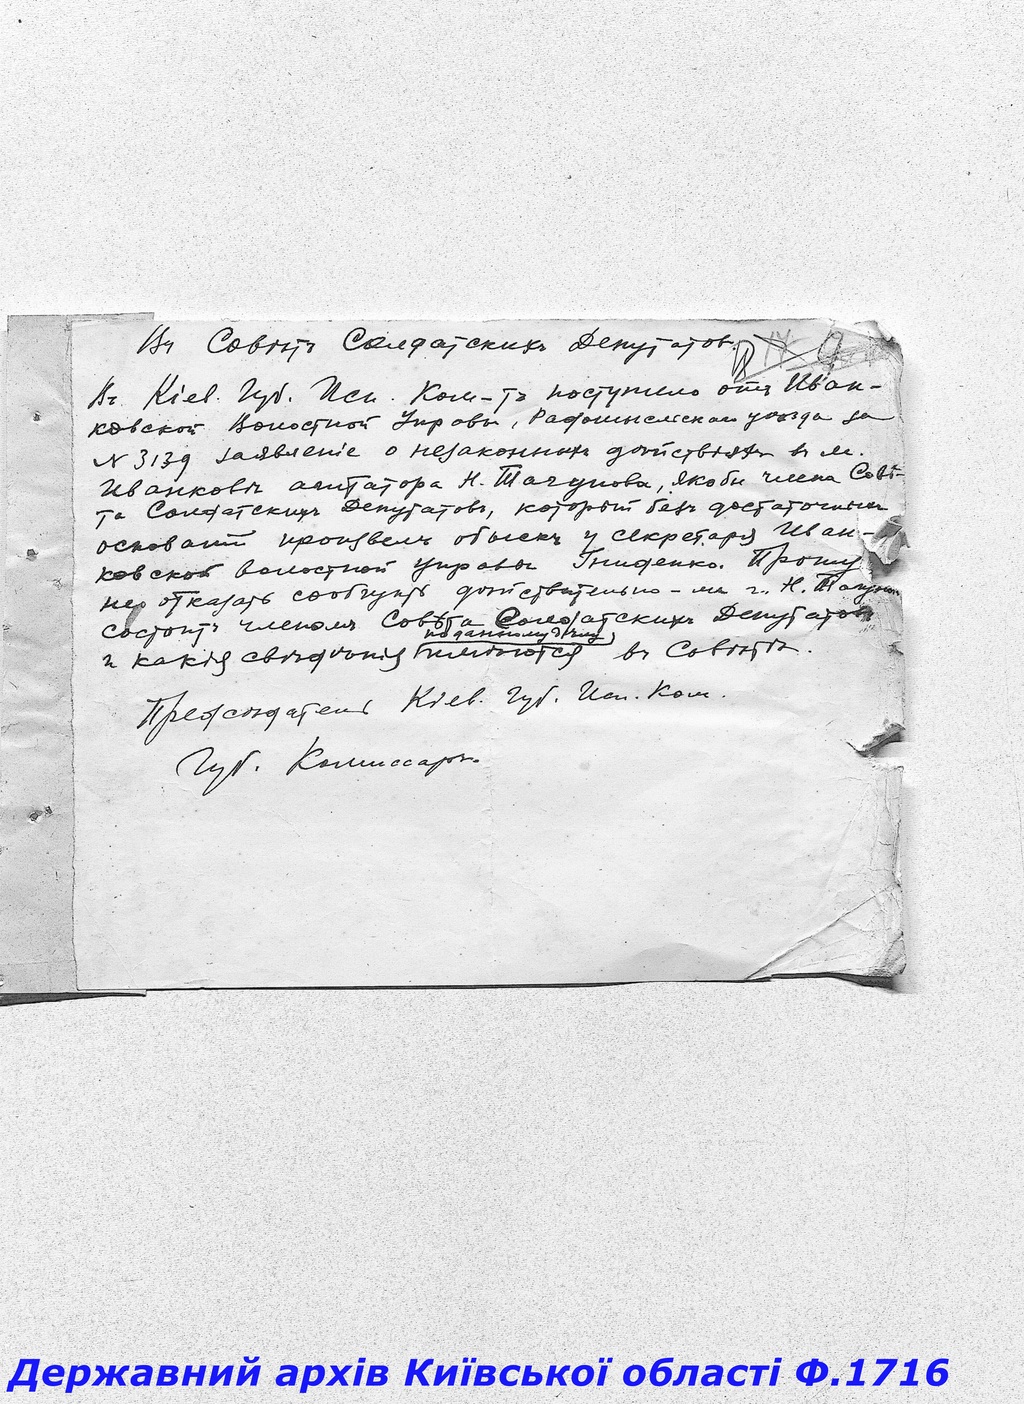 Въ Совѣтъ Солдатскихъ Депутатовъ.
Въ Кіев. Губ. Исп. Ком-тъ поступило отъ Иван-
ковской Волостной Управы, Радомысльскаго уѣзда за
N 3139 заявленіе о незаконныхъ дѣйствіяхъ въ м.
Иванковѣ агитатора Н. Тагунова, якобы члена Совѣ-
та Солдатскихъ Депутатовъ, который безъ достаточныхъ
основаній произвелъ обыскъ у секретаря Иван-
ковской волостной управы Гниденко. Прошу
не отказать сообщить дѣйствительно-ли г. Н. Тагунов
состоитъ членомъ Совѣта Солдатскихъ Депутатовъ
по данному дѣлу
и какія свѣдѣнія имѣются въ Совѣтѣ.
Предсѣдатель Кіев. Губ. Исп. Ком.
Губ. Комиссаръ.
Державний архів Київської області Ф.1716